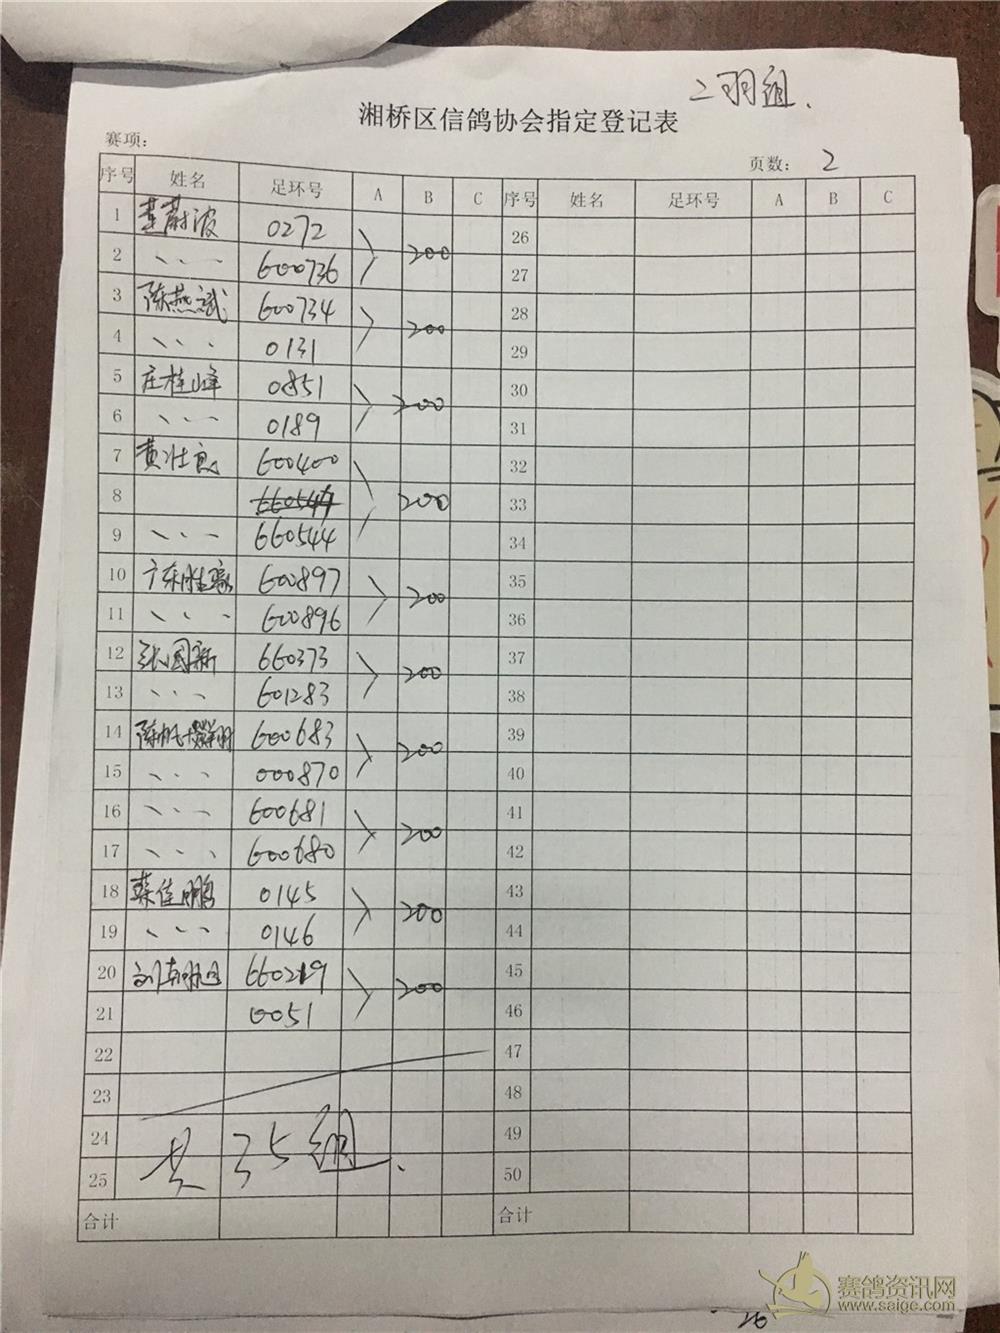 二羽组.
湘桥区信鸽协会指定登记表
赛项：
页数： 2
序号 姓名 足环号 A B C 序号 姓名 足环号 A B C
1 蔚波 0272 200 26
2 、、、 600736 27
3 陈燕斌 600734 200 28
4 、、、 0131 29
5 庄桂峰 0851 200 30
6 、、、 0189 31
7 黄壮良 600400 200 32
8 33
9 、、、 660544 34
10 广东胜豪 600897 200 35
11 、、、 600896 36
12 张国新 660373 200 37
13 、、、 601283 38
14 陈帆 600683 200 39
15 、、、 000870 40
16 、、、 600681 200 41
17 、、、 600680 42
18 蔡佳鹏 0145 200 43
19 、、、 0146 44
20 刘 660219 200 45
21 0051 46
22 47
23 48
24 49
25 50
共35组.
合计 合计
26
赛鸽资讯网
www.saige.com